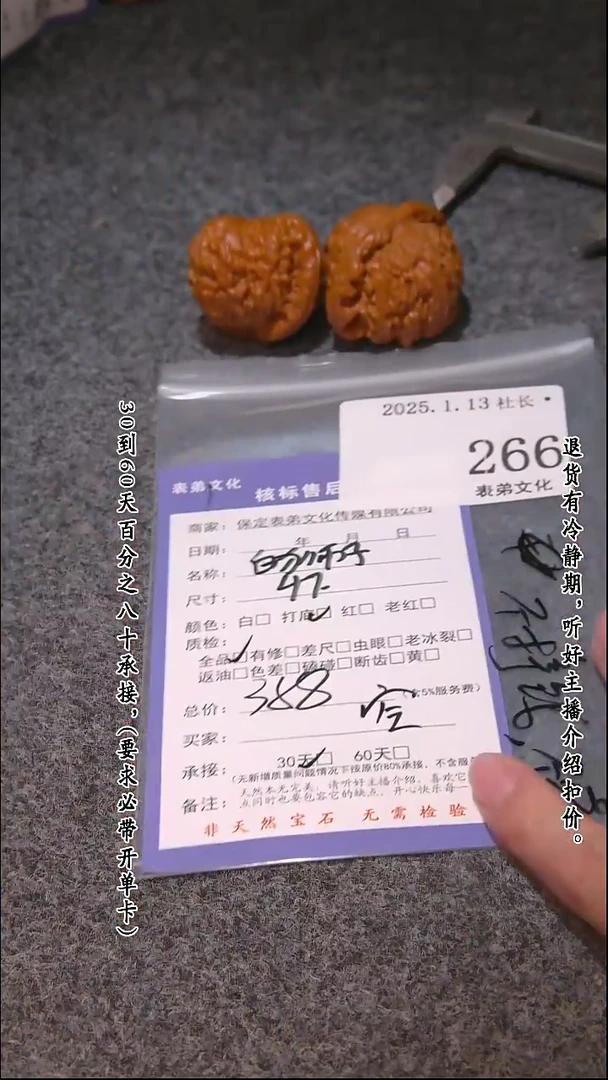 2025.1.13 社长
266
表弟文化
表弟文化
核标售后
商家：保定表弟文化传媒有限公司
日期： 年 月 日
名称：
尺寸：47.
颜色：白□ 打底☑ 红□ 老红□
质检：
全品☑有修□差尺□虫眼□老冰裂□
返油□色差□磕碰□断齿□黄□
总价：388 空 含5%服务费)
买家：
承接：30天☑ 60天□
(无新增质量问题情况下按原价80%承接，不含服
备注：天然本无完美，请听好主播介绍。喜欢它
点同时也要包容它的缺点，开心快乐每一
非天然宝石 无需检验
退货有冷静期，听好主播介绍扣价。
30到60天百分之八十承接，(要求必带开单卡)